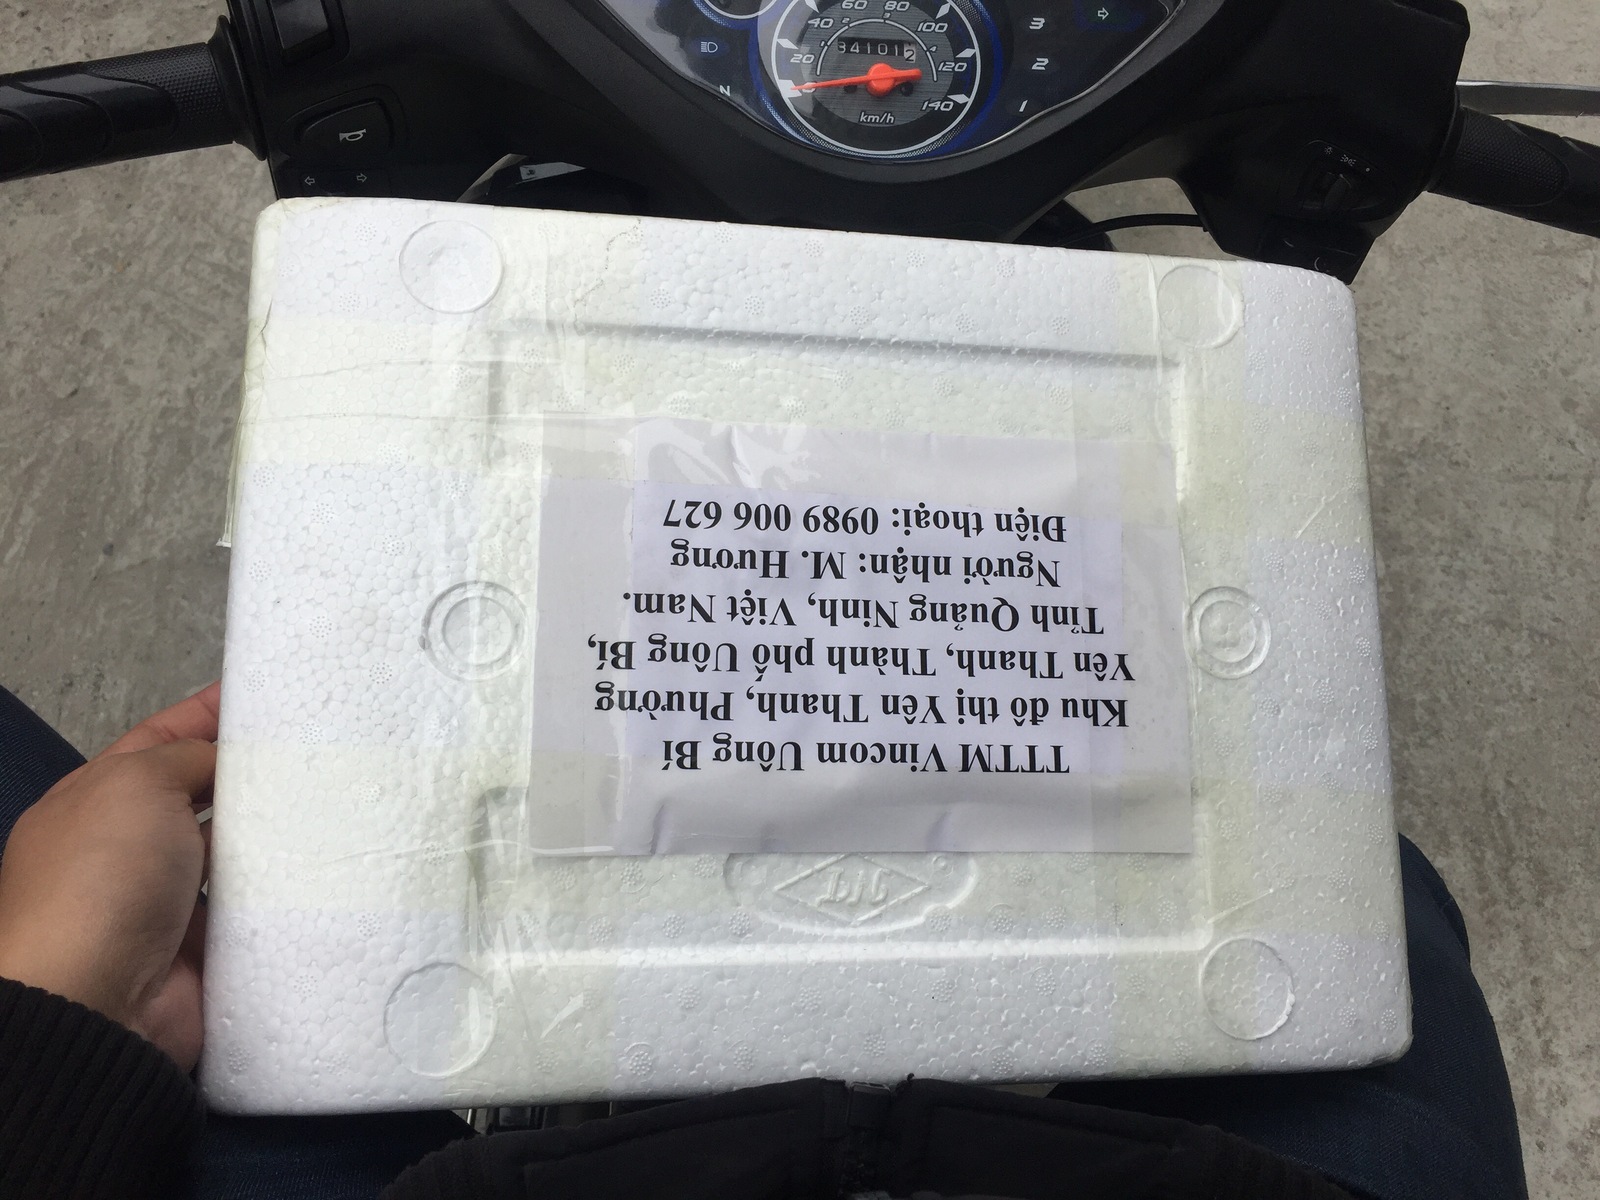 60 80
40 100
20 120
140
34101
km/h
N
3
2
1
TTTM Vincom Uông Bí
Khu đô thị Yên Thanh, Phường
Yên Thanh, Thành phố Uông Bí,
Tỉnh Quảng Ninh, Việt Nam.
Người nhận: M. Hương
Điện thoại: 0989 006 627